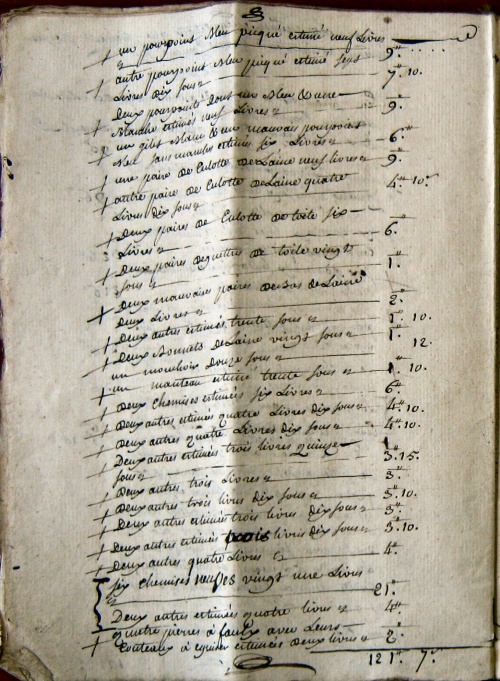 + un pourpoint bleu piqué estimé neuf Livres 9"
+ autre pourpoint bleu piqué estimé sept
Livres dix sous 7" 10.
+ Deux pourpoints dont un bleu & une
blanche estimés neuf Livres 9"
+ un gilet blanc & un mauvais pourpoint
bleu sans manche estimés six Livres 6"
+ une paire de Culotte de Laine neuf livres 9"
+ autre paire de Culotte de Laine quatre
Livres dix sous 4" 10.
+ Deux paires de Culotte de toile six
Livres 6.
+ Deux paires de guettre de toile vingt
sous 1"
+ Deux mauvaises paires de bas de Laine
deux Livres 2"
+ Deux autres estimés trente sous 1" 10.
+ Deux bonnets de Laine vingt sous 1"
un mouchoir Douze sous 12.
+ un manteau estimé trente sous 1" 10.
+ deux Chemises estimées six Livres 6"
+ Deux autres estimés quatre Livres dix sous 4" 10.
+ deux autres quatre Livres dix sous 4" 10.
+ Deux autres estimés trois livres quinze
sous 3" 15.
+ deux autres trois Livres 3"
+ deux autres trois livres dix sous 3" 10.
+ Deux autres estimés trois livres dix sous 3"
+ Deux autres estimés trois livres dix sous 3" 10.
+ deux autres quatre Livres 4"
six Chemises neufves vingt une Livres
21"
Deux autres estimées quatre livres 4"
+ quatre pierres à faulx avec Leurs
+ Couteaux à estimés deux livres 2"
121" 7"